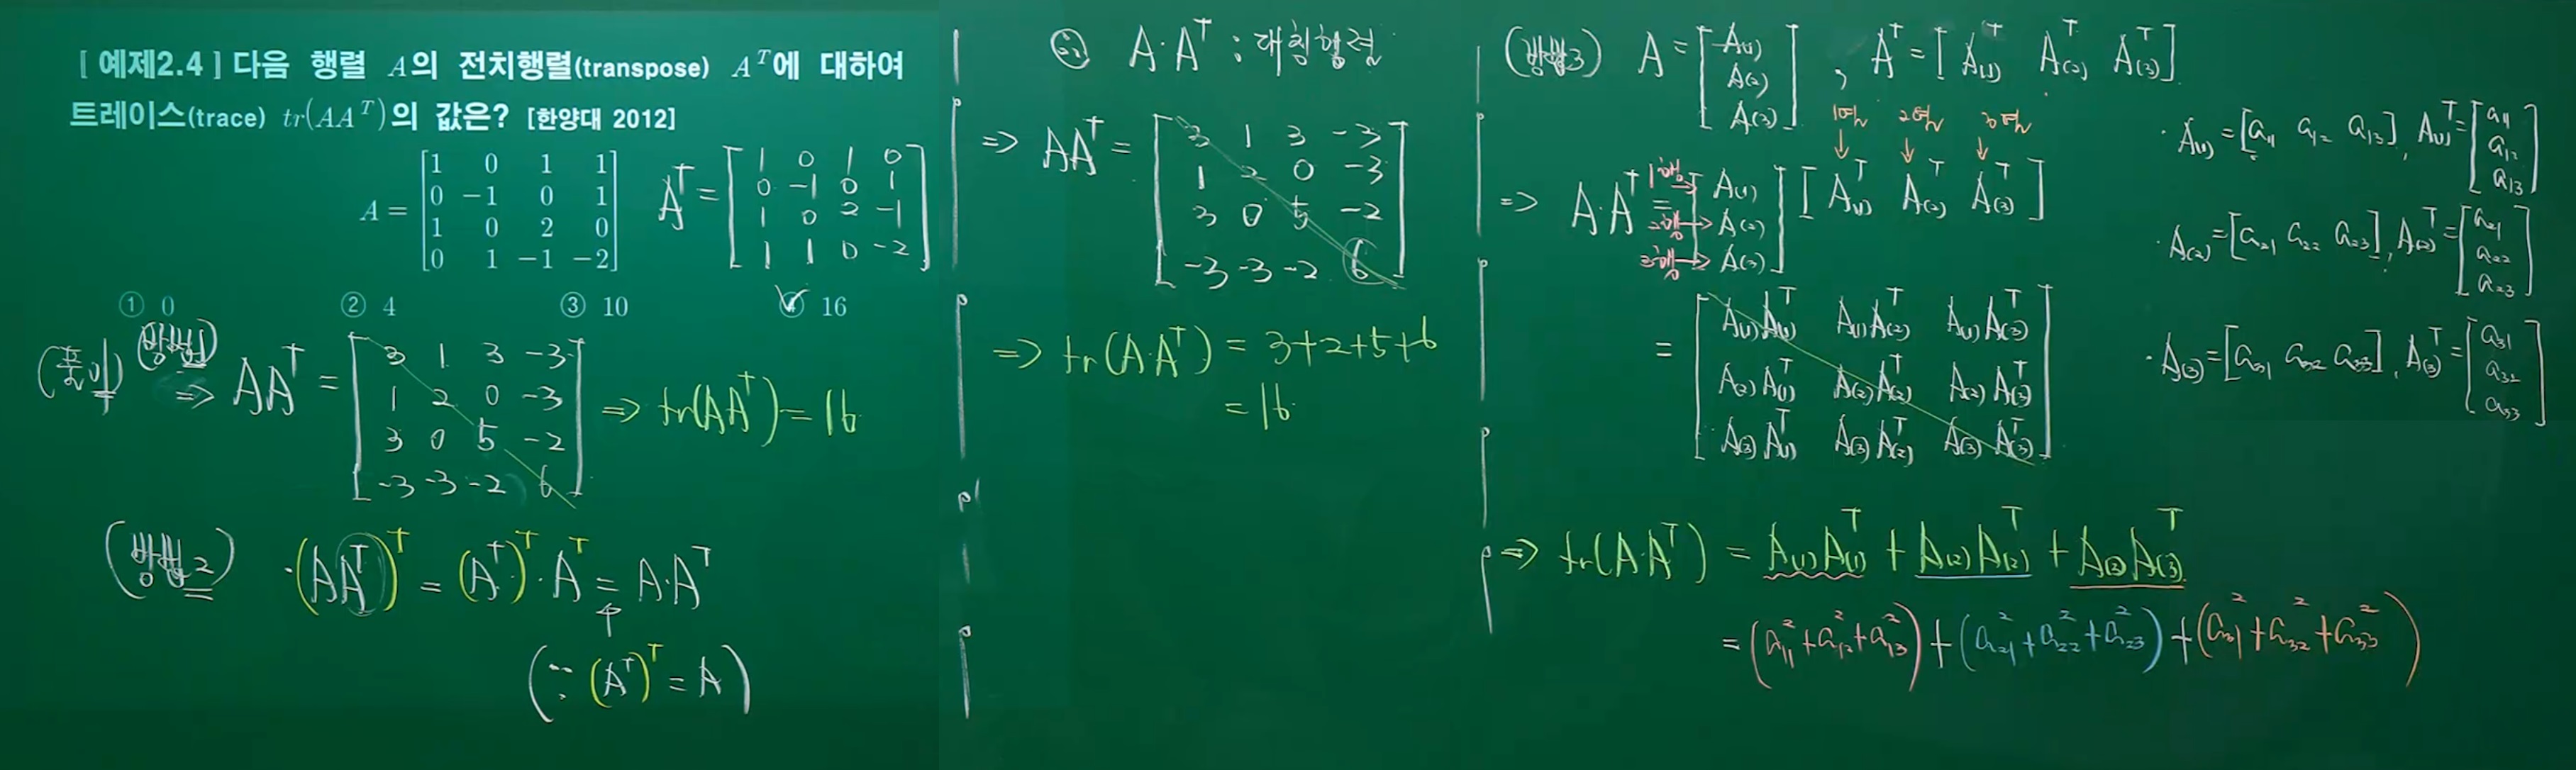 [ 예제2.4 ] 다음 행렬 A의 전치행렬(transpose) A^T에 대하여
트레이스(trace) tr(AA^T)의 값은? [한양대 2012]
A = [1 0 1 1
0 -1 0 1
1 0 2 0
0 1 -1 -2]
A^T = [1 0 1 0
0 -1 0 1
1 0 2 -1
1 1 0 -2]
① 0 ② 4 ③ 10 ④ 16
(풀이) (방법1)
⇒ AA^T = [3 1 3 -3
1 2 0 -3
3 0 5 -2
-3 -3 -2 6]
⇒ tr(AA^T) = 16
(방법2) ·(AA^T)^T = (A^T)^T · A^T = A·A^T
↑
(∵ (A^T)^T = A)
A·A^T : 대칭행렬
⇒ AA^T = [3 1 3 -3
1 2 0 -3
3 0 5 -2
-3 -3 -2 6]
⇒ tr(A·A^T) = 3+2+5+6
= 16
(방법3) A = [A(1)
A(2)
A(3)] , A^T = [A(1)^T A(2)^T A(3)^T]
1열 2열 3열
↓ ↓ ↓
⇒ A·A^T = [A(1)
A(2)
A(3)] [A(1)^T A(2)^T A(3)^T]
1행→
2행→
3행→
= [A(1)A(1)^T A(1)A(2)^T A(1)A(3)^T
A(2)A(1)^T A(2)A(2)^T A(2)A(3)^T
A(3)A(1)^T A(3)A(2)^T A(3)A(3)^T]
⇒ tr(A·A^T) = A(1)A(1)^T + A(2)A(2)^T + A(3)A(3)^T
= (a11^2+a12^2+a13^2) + (a21^2+a22^2+a23^2) + (a31^2+a32^2+a33^2)
· A(1) = [a11 a12 a13], A(1)^T = [a11
a12
a13]
· A(2) = [a21 a22 a23], A(2)^T = [a21
a22
a23]
· A(3) = [a31 a32 a33], A(3)^T = [a31
a32
a33]